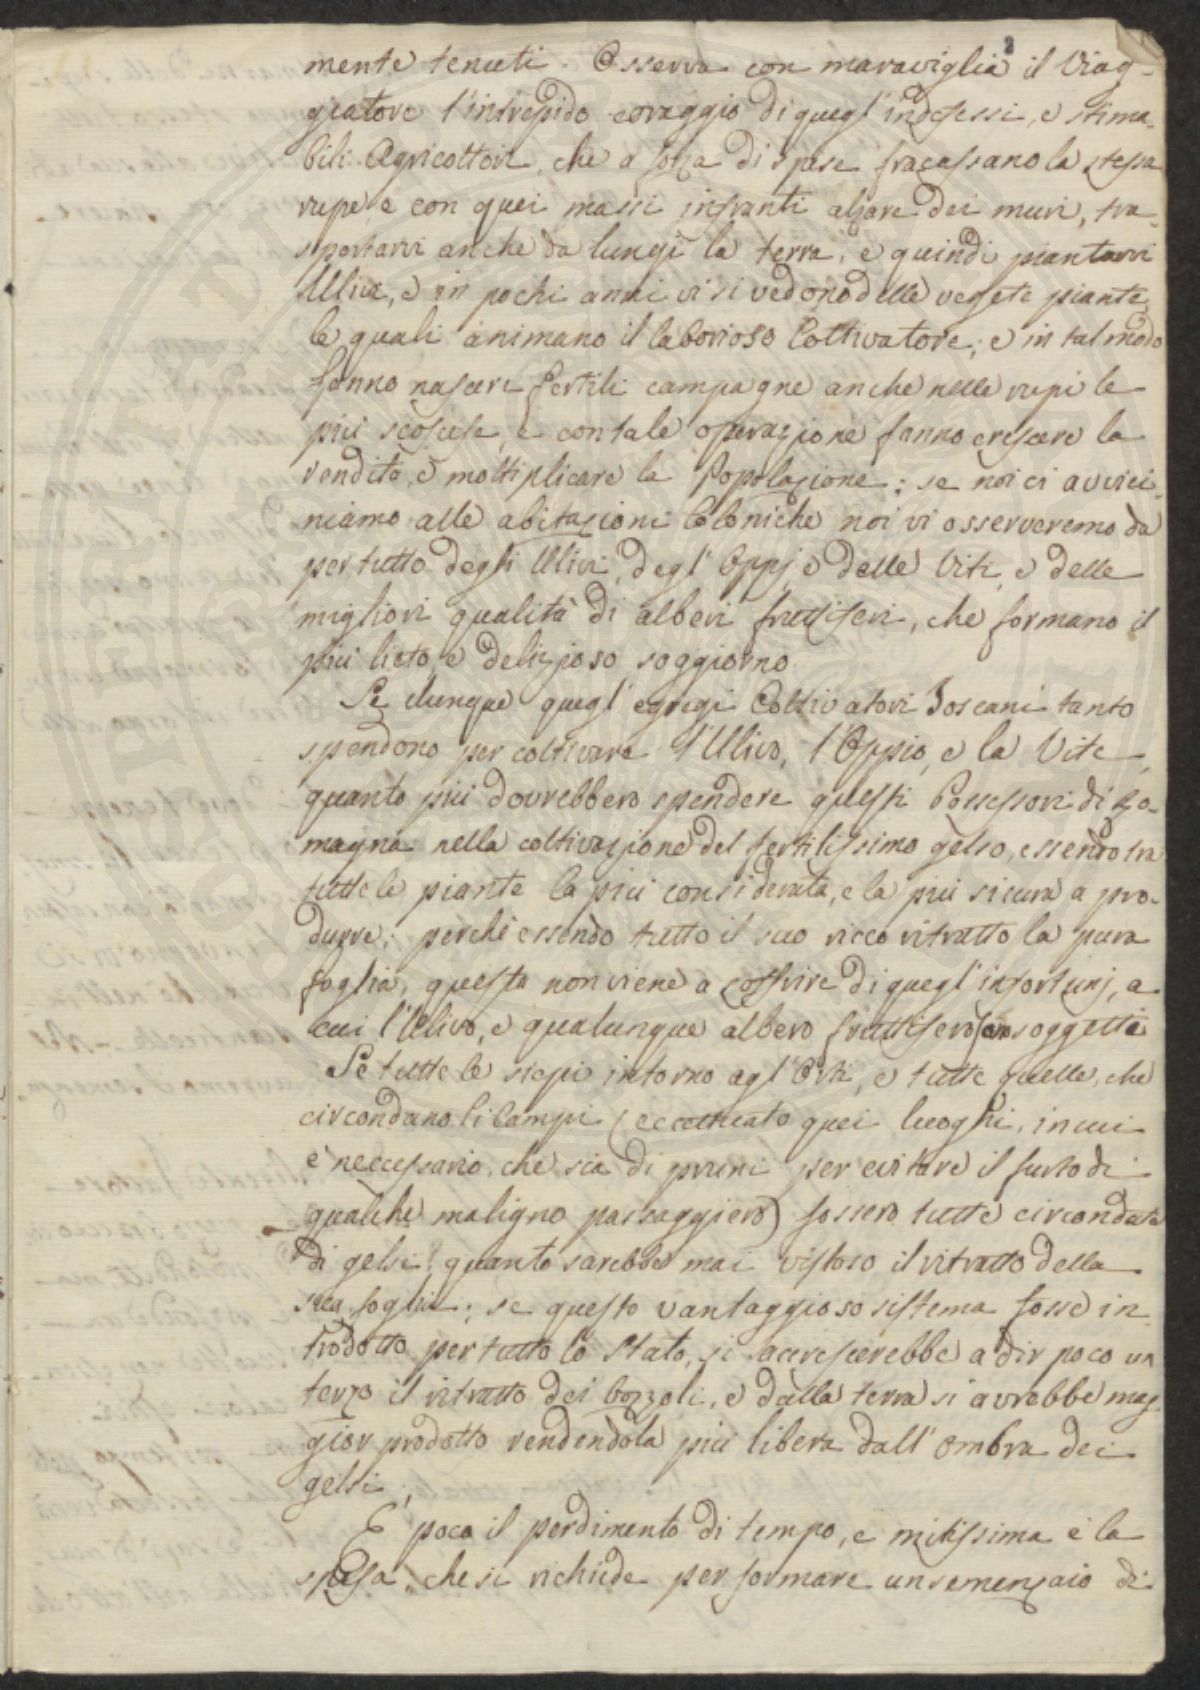 mente tenuti. Osserva con maraviglia il Viag-
giatore l'intrepido coraggio di quegl'indefessi, e stima-
bili Agricoltori, che a forza di spese fracassano la stessa
rupe e con quei massi infranti alzare dei muri, tra-
sportarvi anche da lungi la terra, e quindi piantarvi
Ulivi, e in pochi anni vi si vedono delle vegete piante
le quali animano il laborioso Coltivatore; e in tal modo
fanno nascere fertili campagne anche nelle rupi le
più scoscese, e con tale operazione fanno crescere la
rendita, e moltiplicare la Popolazione; se noi ci avvici-
niamo alle abitazioni Coloniche noi vi osserveremo da
per tutto degli Ulivi, degl'Oppj, e delle Viti, e delle
migliori qualità di alberi fruttiferi, che formano il
più lieto, e delizioso soggiorno.
Se dunque quegl'egregi Coltivatori Toscani tanto
spendono per coltivare l'Ulivo, l'Oppio, e la Vite,
quanto più dovrebbero spendere questi Possessori di Ro-
magna nella coltivazione del fertilissimo gelso, essendo tra
tutte le piante la più considerata, e la più sicura a pro-
durre; perchè essendo tutto il suo ricco ritratto la pura
foglia, questa non viene a soffrire di quegl'infortunj, a
cui l'Ulivo, e qualunque albero fruttifero son soggetti
Se tutte le siepi intorno agl'Orti, e tutte quelle, che
circondano li Campi (eccettuato quei luoghi, in cui
è neccessario, che sia di pruni per evitare il furto di
qualche maligno passaggiero) fossero tutte circondate
di gelsi! quanto sarebbe mai vistoso il ritratto della
sua foglia; se questo vantaggioso sistema fosse in-
trodotto per tutto lo Stato, si accrescerebbe a dir poco un
terzo il ritratto dei bozzoli, e dalla terra si avrebbe mag-
gior prodotto rendendola più libera dall'ombra dei
gelsi.
E' poco il perdimento di tempo, e mitissima è la
spesa, che si richiede per formare un semenzaio di